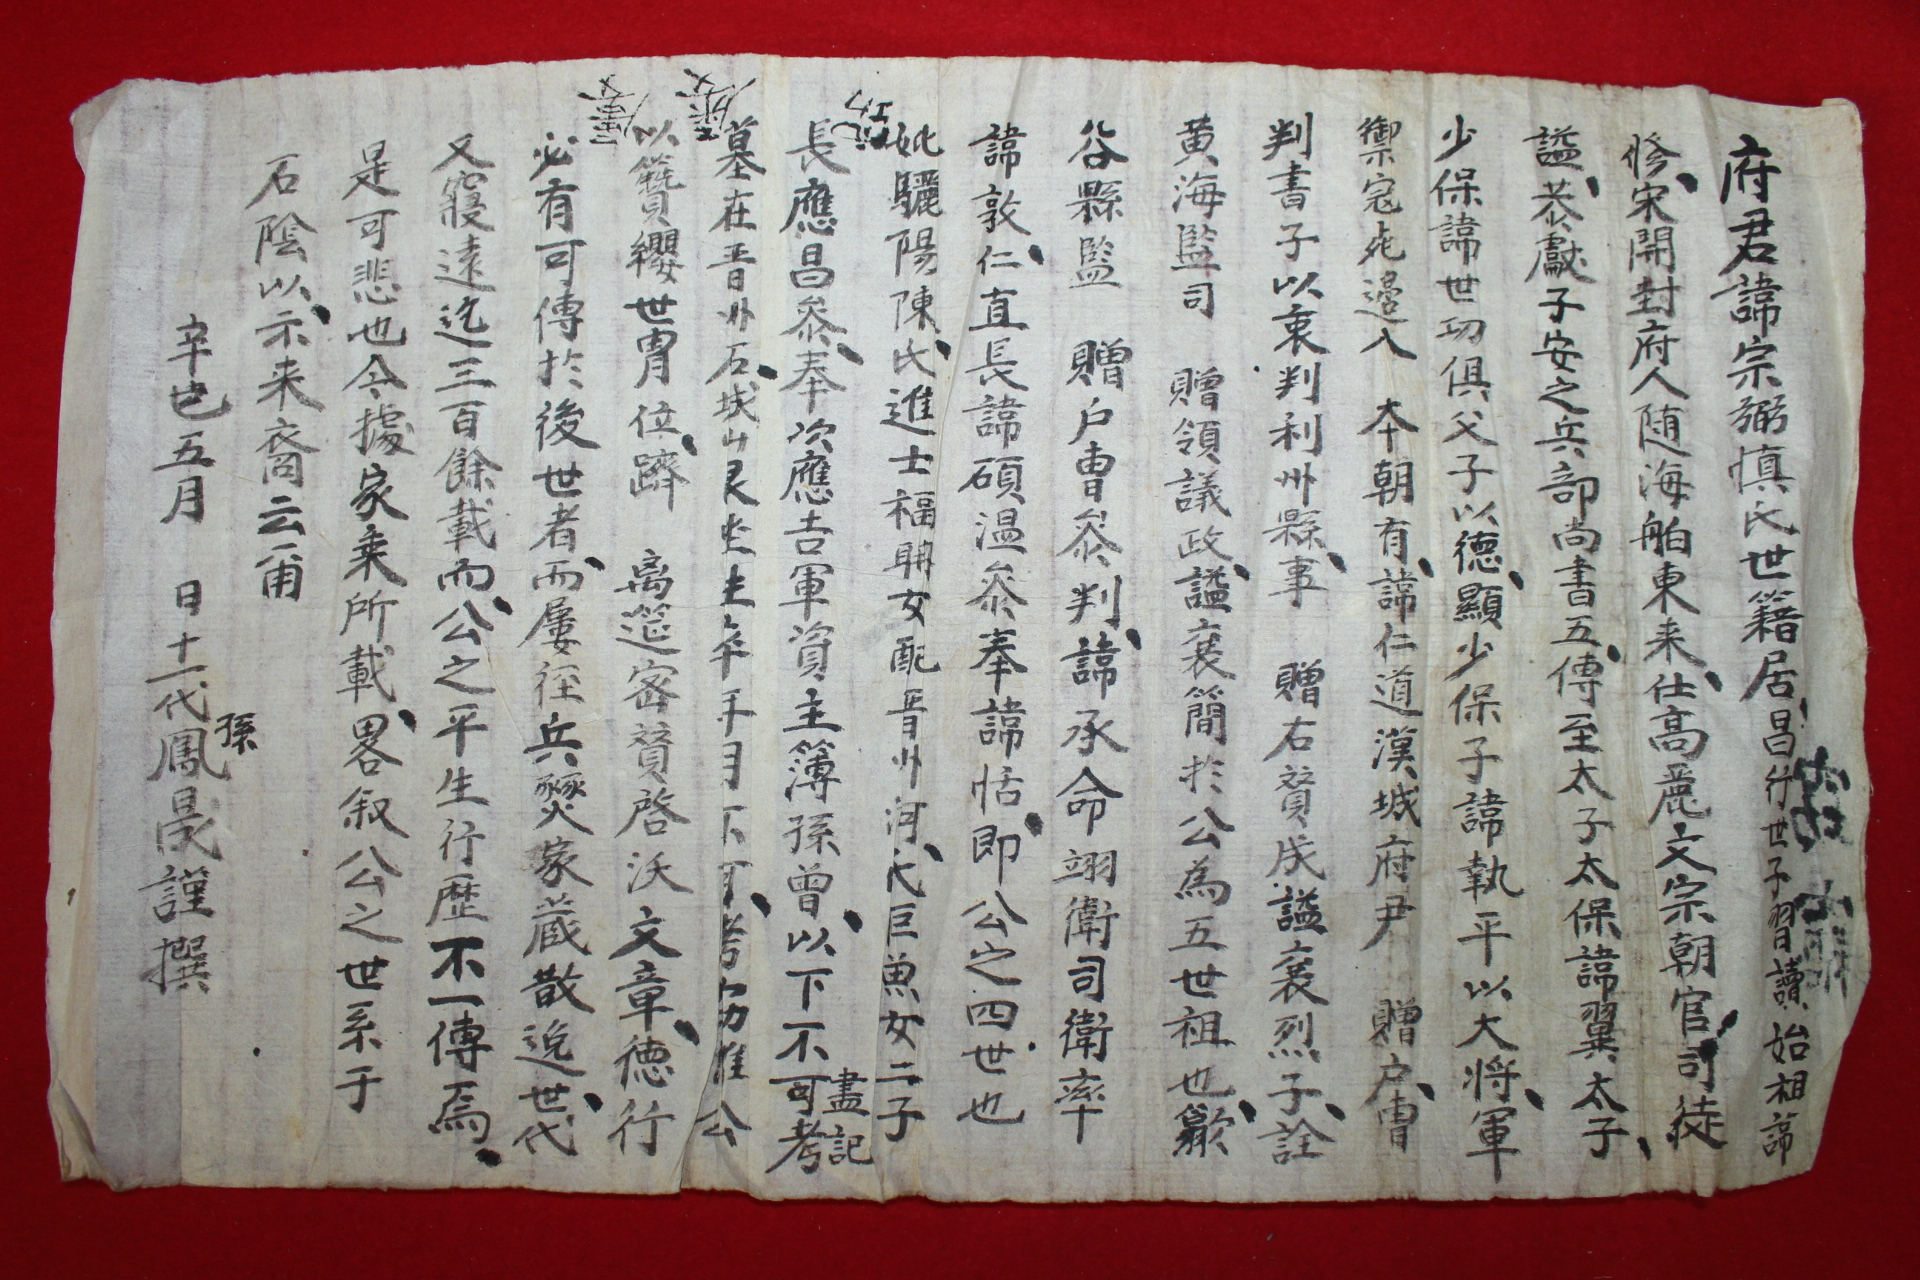 府君諱宗弼愼氏世籍居昌行世子翊讀始祖諱
修宋開封府人随海舶東来仕高麗文宗朝官司徒
謚恭獻子安之兵部尚書五傳至太子太保諱翼太子
少保諱世功俱父子以德顯少保子諱執平以大将軍
禦寇死邊入 本朝有諱仁道漢城府尹 贈户曺
判書子以衷判利州縣事 贈右賛成謚襄烈子詮
黄海監司 贈領議政謚襄簡於公為五世祖也
谷縣監 贈户曺叅判諱承命翊衛司衛率
諱敦仁直長諱碩温叅奉諱恬即公之四世也
妣驪陽陳氏進士福女配晋州河氏巨魚女二子
長應昌叅奉次應吉軍資主簿孫曾以下不可盡記考
墓在晋州石城山艮坐生卒年月不可考惟公
以簪纓世胄位躋 离筵密賛啓沃文章德行
必有可傳於後世者而屢經兵燹家蔵散逸世代
又寢遠迄三百餘載而公之平生行歴不一傳焉
是可悲也今據家乘所載畧叙公之世系于
石陰以示来裔云甭
辛巳五月 日十一代孫鳳晟謹撰